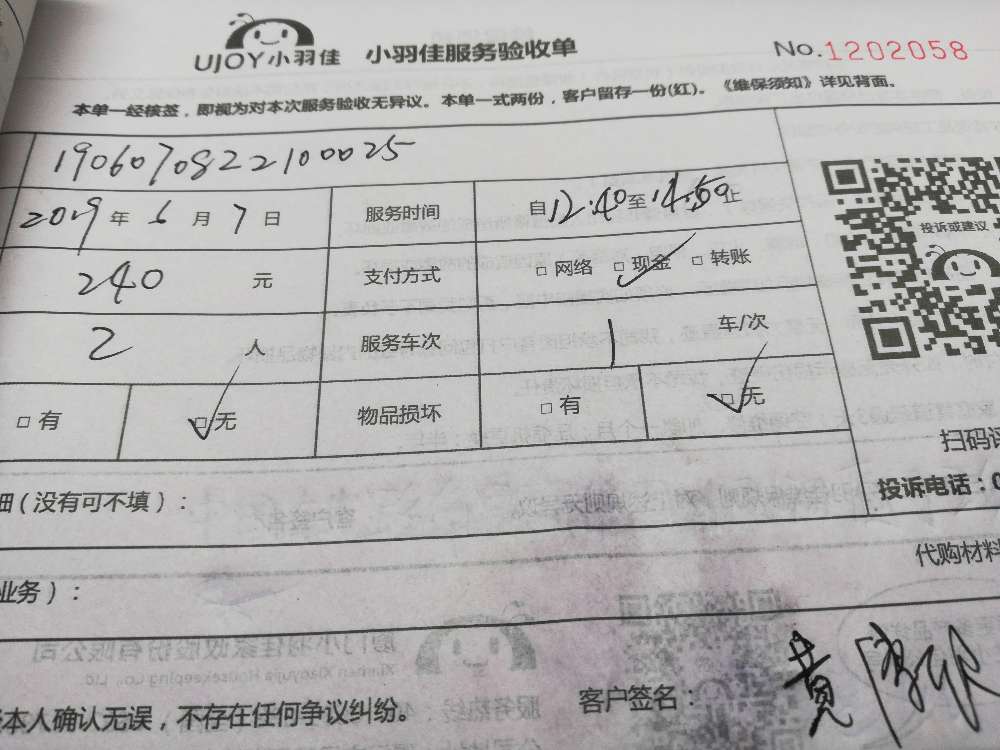 UJOY小羽佳 小羽佳服务验收单 No.1202058
本单一经核签，即视为对本次服务验收无异议。本单一式两份，客户留存一份(红)。《维保须知》详见背面。
1906070822100025
2019年6月7日 服务时间 自12:40至14:50止
投诉或建议
240元 支付方式 □网络 □现金 □转账
2人 服务车次 1车/次
□有 □无 物品损坏 □有 □无
扫码评
细(没有可不填)： 投诉电话：0
代购材料
业务)：
本人确认无误，不存在任何争议纠纷。 客户签名： 黄